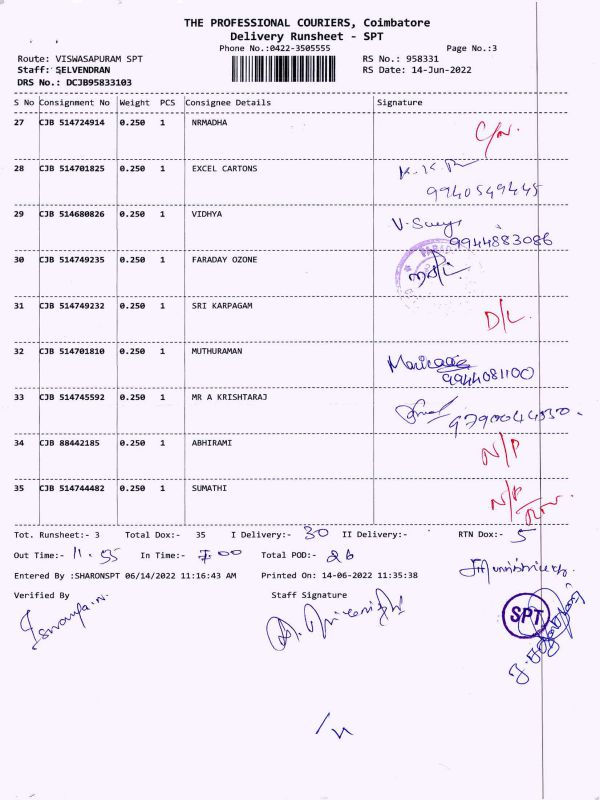 THE PROFESSIONAL COURIERS, Coimbatore
Delivery Runsheet - SPT
Phone No.:0422-3505555 Page No.:3
Route: VISWASAPURAM SPT RS No.: 958331
Staff: SELVENDRAN RS Date: 14-Jun-2022
DRS No.: DCJB95833103
S No Consignment No Weight PCS Consignee Details Signature
27 CJB 514724914 0.250 1 NRMADHA
28 CJB 514701825 0.250 1 EXCEL CARTONS K.K.R
9940549445
29 CJB 514680826 0.250 1 VIDHYA
9944883086
30 CJB 514749235 0.250 1 FARADAY OZONE
31 CJB 514749232 0.250 1 SRI KARPAGAM D/L
32 CJB 514701810 0.250 1 MUTHURAMAN
9944081100
33 CJB 514745592 0.250 1 MR A KRISHTARAJ
34 CJB 88442185 0.250 1 ABHIRAMI N/P
35 CJB 514744482 0.250 1 SUMATHI N/P
RTN
Tot. Runsheet:- 3 Total Dox:- 35 I Delivery:- 30 II Delivery:- RTN Dox:- 5
Out Time:- 11.55 In Time:- 7.00 Total POD:- 26
Entered By :SHARONSPT 06/14/2022 11:16:43 AM Printed On: 14-06-2022 11:35:38
Verified By Staff Signature
SPT